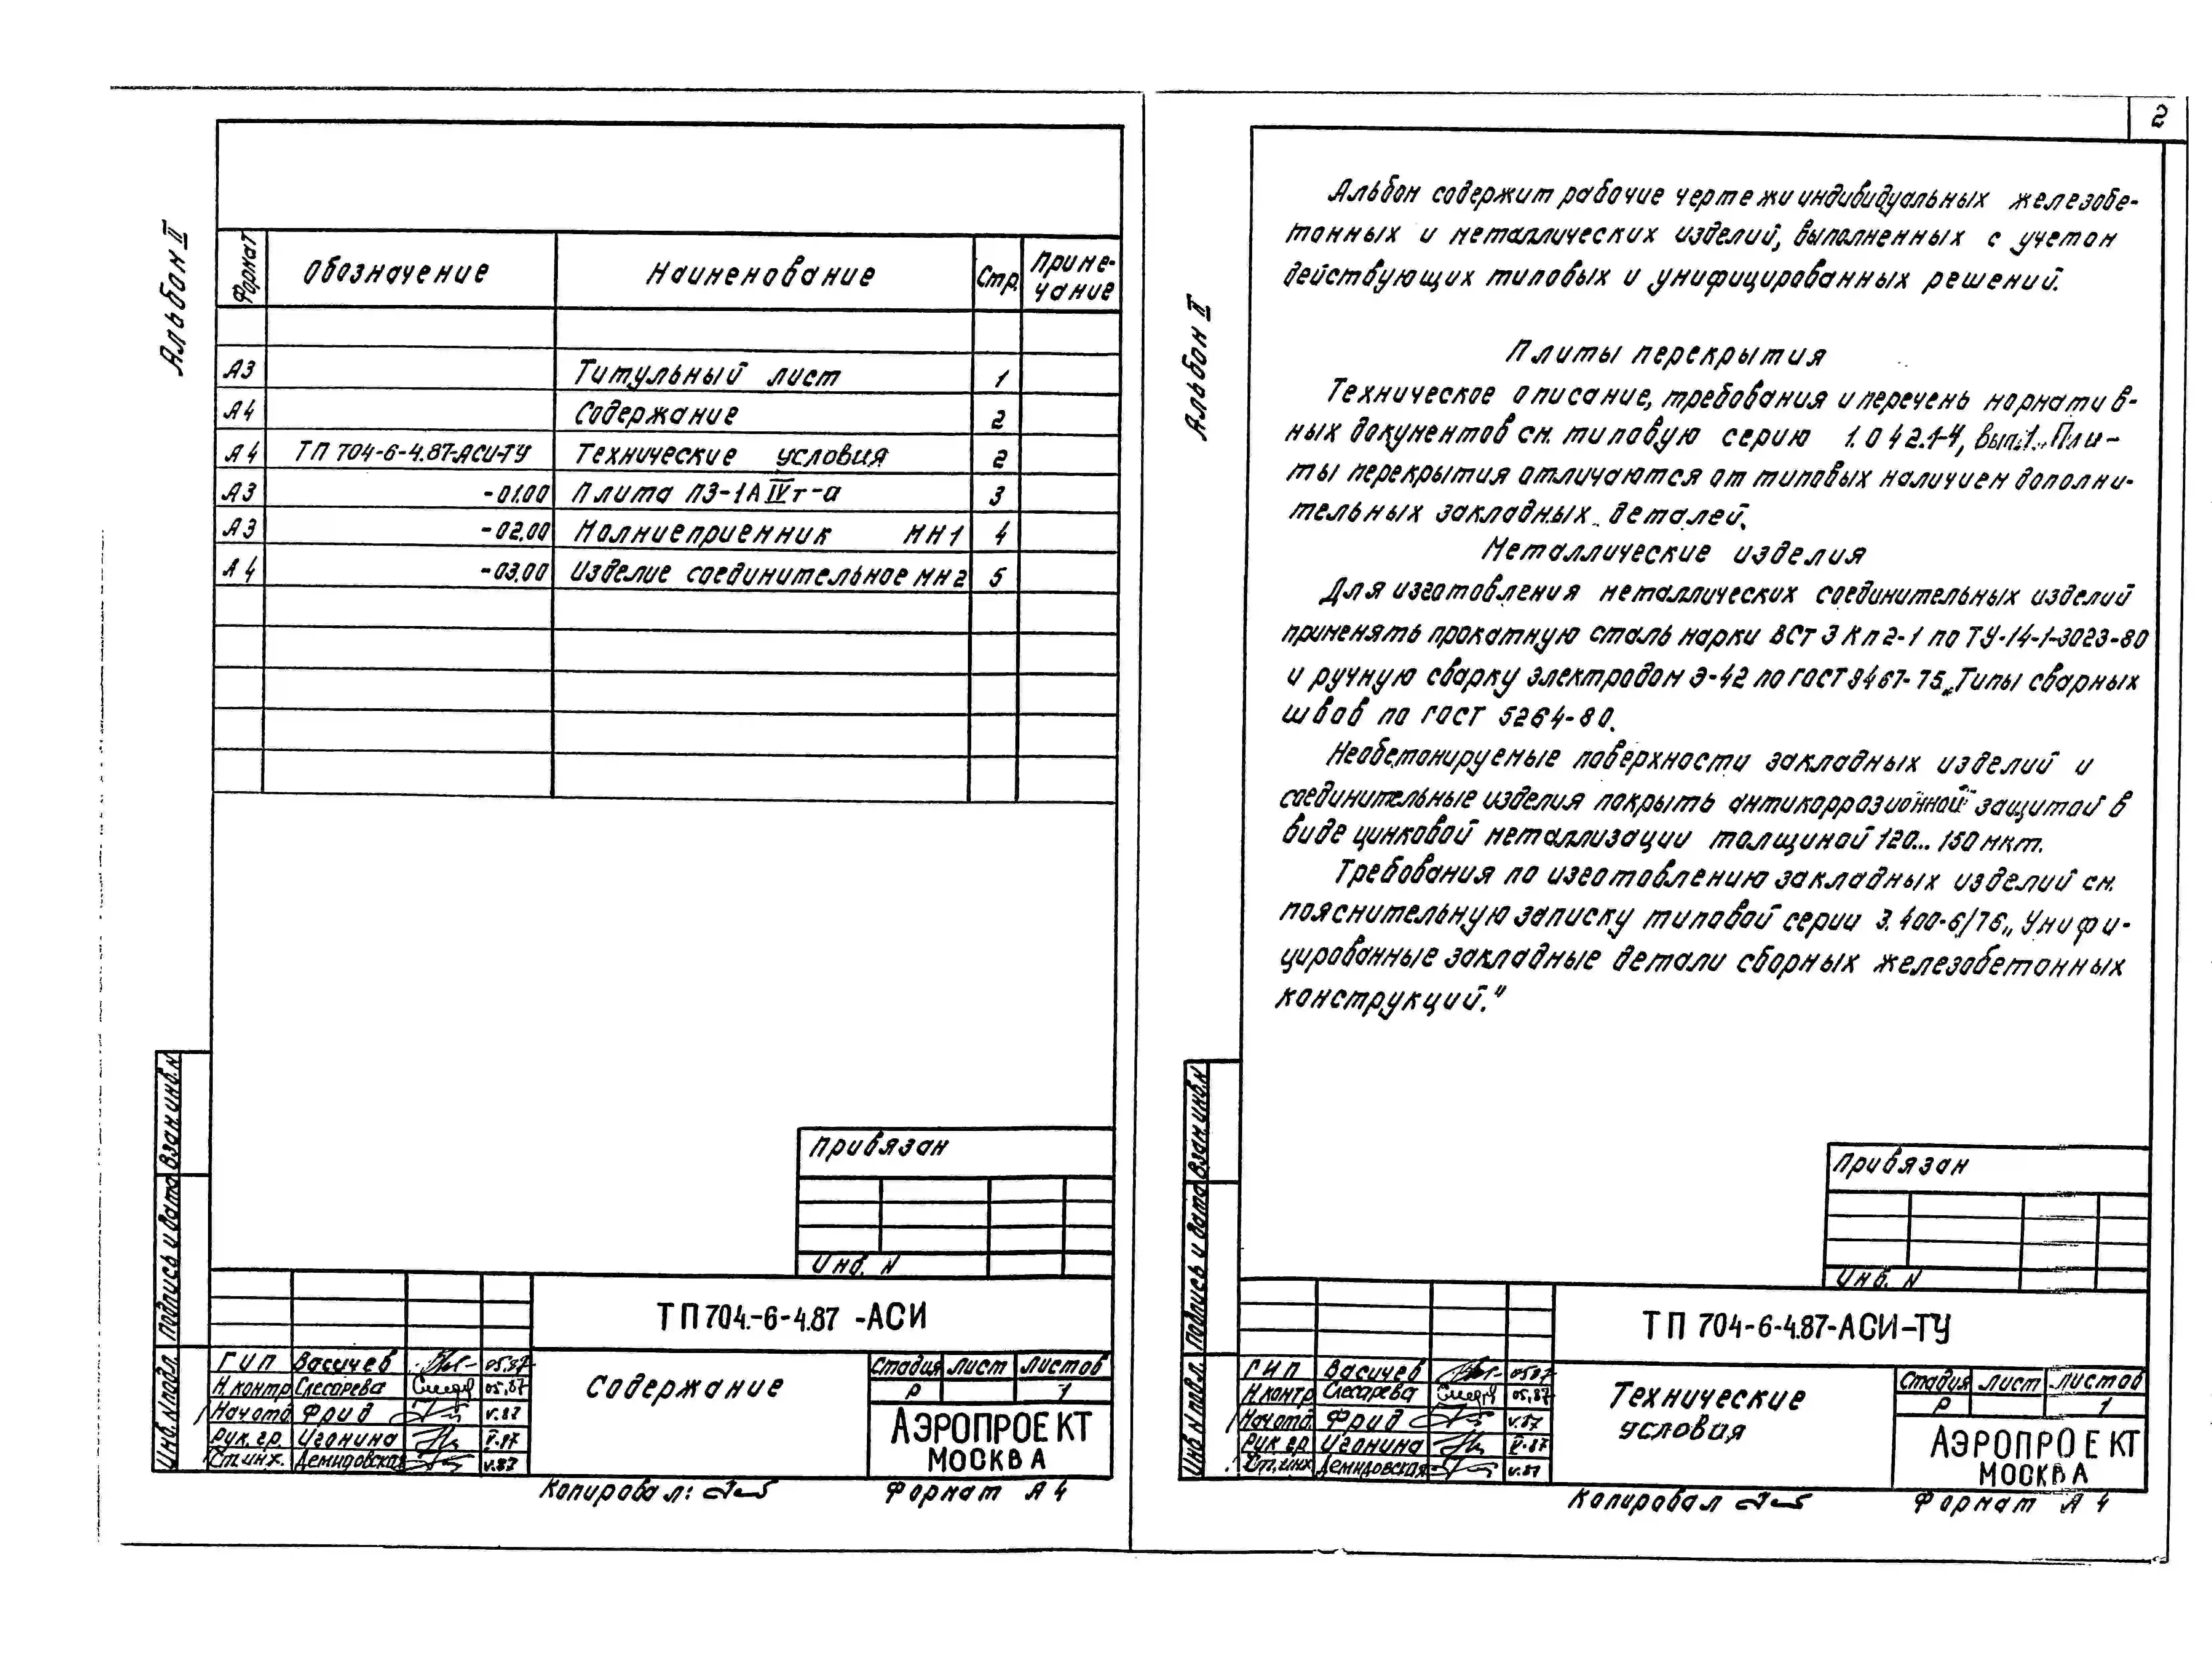 Альбом II
Формат Обозначение Наименование Стр. Приме-
чание
А3 Титульный лист 1
А4 Содержание 2
А4 ТП 704-6-4.87-АСИ-ТУ Технические условия 2
А3 -01.00 Плита П3-1АIVт-а 3
А3 -02.00 Молниеприемник МН1 4
А4 -03.00 Изделие соединительное МН2 5
Привязан
Инв. N
Взам.инв.N
Подпись и дата
Инв.N подл.
ТП 704-6-4.87-АСИ
ГИП Васичев 05.87
Н.контр Слесарева 05.87
Нач.отд Фрид V.87
Рук.гр. Игонина V.87
Ст.инж. Демидовская V.87
Содержание
Стадия Лист Листов
Р 1
АЭРОПРОЕКТ
МОСКВА
Копировал: Формат А4
2
Альбом II
Альбом содержит рабочие чертежи индивидуальных железобе-
тонных и металлических изделий, выполненных с учетом
действующих типовых и унифицированных решений.
Плиты перекрытия
Техническое описание, требования и перечень норматив-
ных документов см. типовую серию 1.042.1-4, вып.1. Пли-
ты перекрытия отличаются от типовых наличием дополни-
тельных закладных деталей.
Металлические изделия
Для изготовления металлических соединительных изделий
применять прокатную сталь марки ВСт 3 Кп 2-1 по ТУ-14-1-3023-80
и ручную сварку электродом Э-42 по ГОСТ 9467-75. Типы сварных
швов по ГОСТ 5264-80.
Необетонируемые поверхности закладных изделий и
соединительные изделия покрыть антикоррозионной защитой в
виде цинковой металлизации толщиной 120... 150 мкм.
Требования по изготовлению закладных изделий см.
пояснительную записку типовой серии 3.400-6/76 „Унифи-
цированные закладные детали сборных железобетонных
конструкций."
Привязан
Инв. N
Взам.инв.N
Подпись и дата
Инв N подл.
ТП 704-6-4.87-АСИ-ТУ
ГИП Васичев 05.87
Н.контр Слесарева 05.87
Нач.отд. Фрид V.87
Рук.гр. Игонина V.87
Ст.инж Демидовская V.87
Технические
условия
Стадия Лист Листов
Р 1
АЭРОПРОЕКТ
МОСКВА
Копировал Формат А4